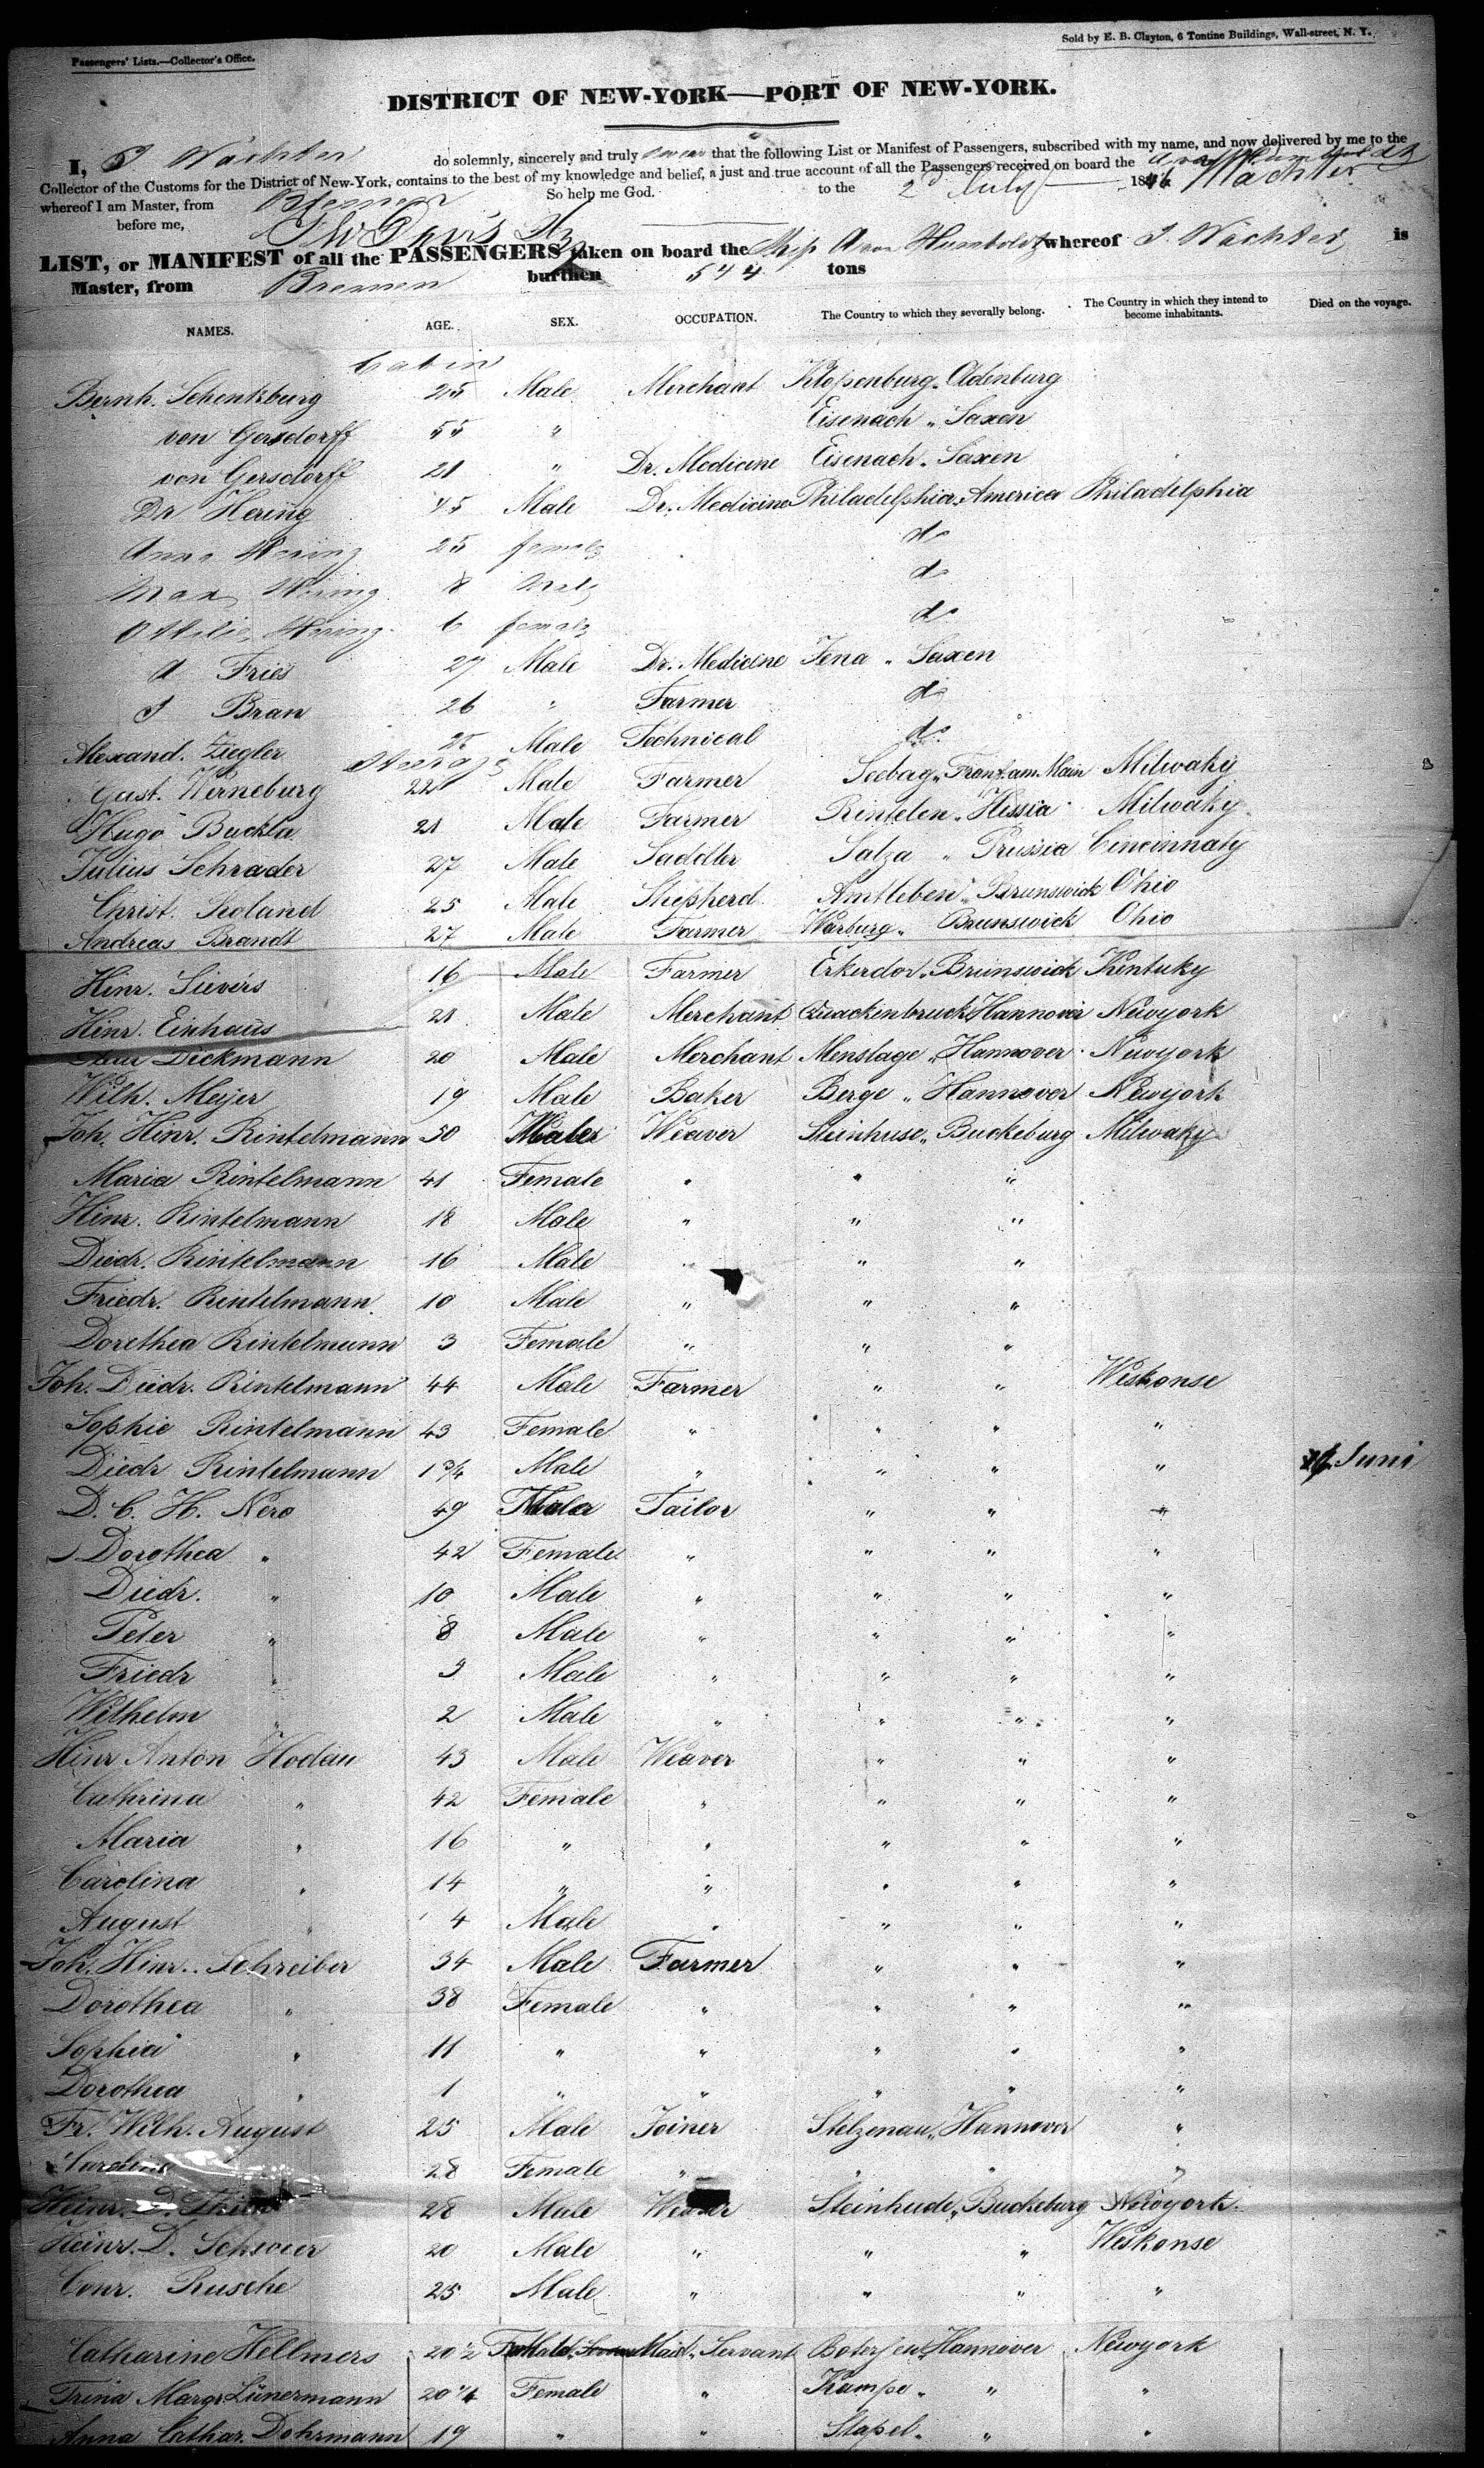 Passengers' Lists.—Collector's Office.
Sold by E. B. Clayton, 6 Tontine Buildings, Wall-street, N. Y.
DISTRICT OF NEW-YORK—PORT OF NEW-YORK.
I, J Wächter do solemnly, sincerely and truly swear that the following List or Manifest of Passengers, subscribed with my name, and now delivered by me to the
Collector of the Customs for the District of New-York, contains to the best of my knowledge and belief, a just and true account of all the Passengers received on board the
whereof I am Master, from Bremen So help me God. to the 2d July 1846 Wächter
before me,
LIST, or MANIFEST of all the PASSENGERS taken on board the Ship A von Humboldt whereof J. Wächter is
Master, from Bremen burthen 544 tons
NAMES. AGE. SEX. OCCUPATION. The Country to which they severally belong. The Country in which they intend to become inhabitants. Died on the voyage.
Cabin
Bernh. Schentzburg 25 Male Merchant Klopenburg. Oldenburg
von Gersdorff 55 " Eisenach " Saxen
von Gersdorff 21 " Dr. Medicine Eisenach. Saxen
Dr Hering 45 Male Dr. Medicine Philadelphia. America Philadelphia
Anna Hering 25 female do
Max Hering 8 Male do
Ottilie Hering 6 female do
A Fries 27 Male Dr. Medicine Jena " Saxen
J Bran 26 " Farmer do
Alexand. Ziegler 25 Male Technical do
Steerage
Gust. Werneburg 22 Male Farmer Seebag " Frankf. am Main Milwaky
Hugo Buckla 21 Male Farmer Rintelen " Hessia Milwaky
Julius Schrader 27 Male Saddler Salza " Prussia Cincinnaty
Christ. Seoland 25 Male Shepherd Amtleben " Brunswick Ohio
Andreas Brandt 27 Male Farmer Warburg " Brunswick Ohio
Hinr. Sievers 16 Male Farmer Erkerdor " Brunswick Kentuky
Hinr. Einhaus 21 Male Merchant Quackenbruck Hannover Newyork
Dickmann 20 Male Merchant Menslage " Hannover Newyork
Wilh. Meijer 19 Male Baker Berge " Hannover Newyork
Joh. Hinr. Rintelmann 50 Male Weaver Steinhuse " Buckeburg Milwaky
Maria Rintelmann 41 Female " " "
Hinr. Rintelmann 18 Male " " "
Diedr. Rintelmann 16 Male " " "
Friedr. Rintelmann 10 Male " " "
Dorethea Rintelmann 3 Female " " "
Joh. Diedr. Rintelmann 44 Male Farmer " " Weskonse
Sophie Rintelmann 43 Female " " " "
Diedr Rintelmann 1 3/4 Male " " " " Juni
D. C. H. Nero 49 Male Tailor " " "
Dorothea " 42 Female " " " "
Diedr. " 10 Male " " " "
Peter " 8 Male " " " "
Friedr " 3 Male " " " "
Wilhelm " 2 Male " " " "
Hinr Anton Hodau 43 Male Weaver " " "
Cathrina " 42 Female " " " "
Maria " 16 " " " " "
Carolina " 14 " " " " "
August " 4 Male " " " "
Joh. Hinr. Schreiber 34 Male Farmer " " "
Dorothea " 38 Female " " " "
Sophia " 11 " " " " "
Dorothea " 1 " " " " "
Fr. Wilh. August 25 Male Joiner Stelzenau " Hannover "
28 Female " " " "
Heinr. D. 28 Male Weaver Steinhude " Buckeburg Newyork.
Heinr. D. Schwier 20 Male " " " Weskonse
Conr. Rusche 25 Male " " " "
Catharine Hellmers 20 1/2 Female Maid. Servant Hannover Newyork
Trina Margr Lünermann 20 1/4 Female " Kampe " " "
Anna Cathar. Dohrmann 19 " " Stapel " " "